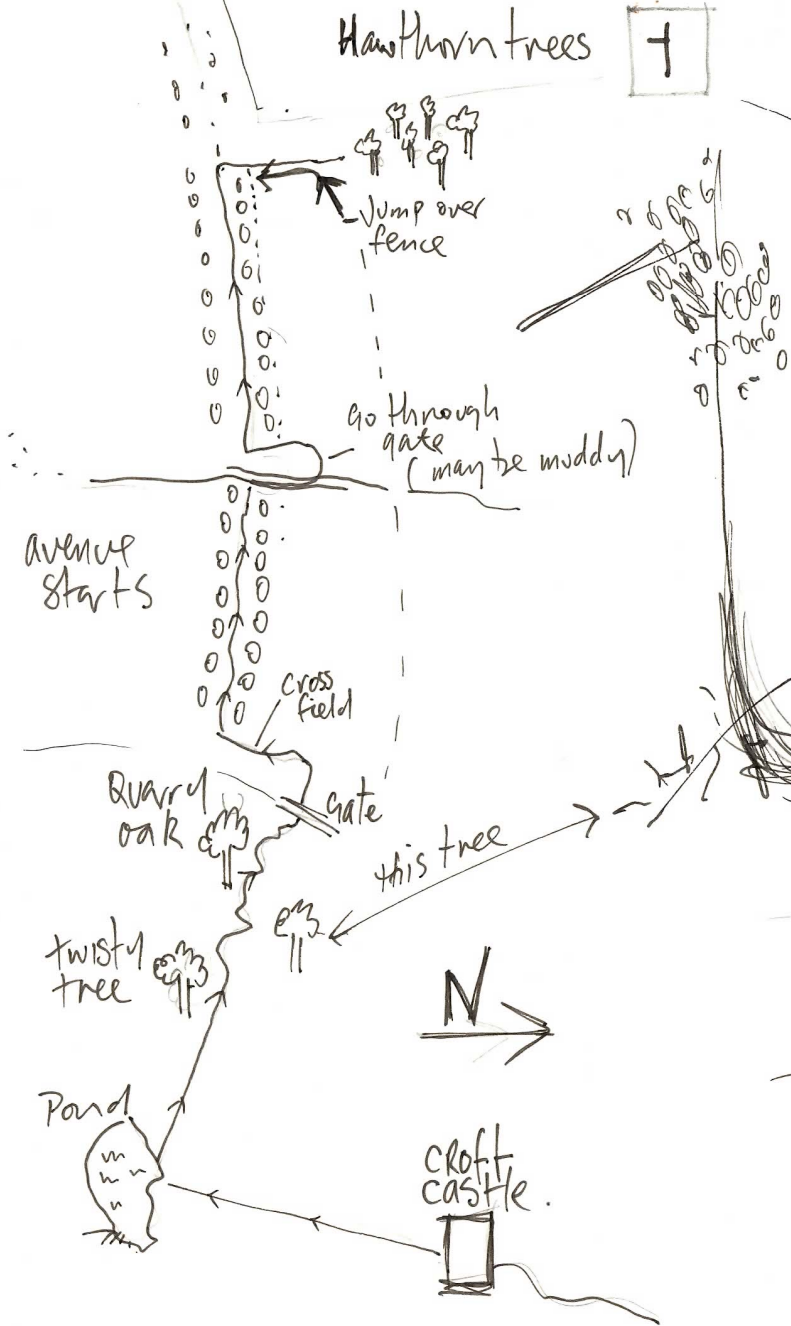 Hawthorn trees
1
Jump over
fence
Go through
gate
(may be muddy)
avenue
starts
cross
field
Quarry
oak
Gate
this tree
twisty
tree
N
Pond
CROFT
CASTLE.